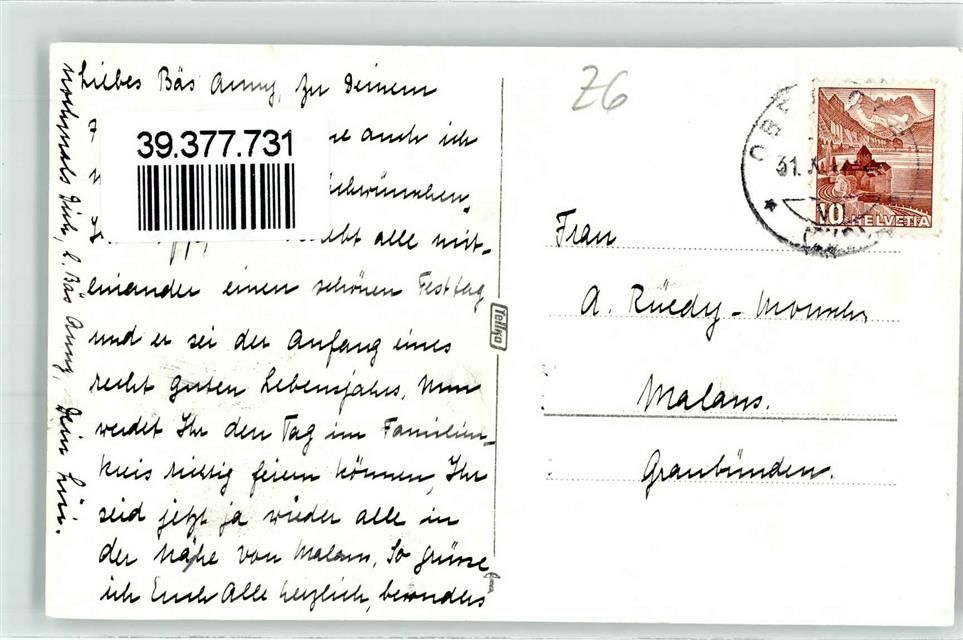 Liebes Bäs Anny, Zu Deinem
auch ich
39.377.731
alle mit-
einander einen schönen Festtag
und er sei der Anfang eines
recht guten Lebensjahrs. Nun
werdet Ihr den Tag im Familien-
kreis richtig feiern können, Ihr
seid jetzt ja wieder alle in
der Nähe von Malans. So grüsse
ich Euch Alle herzlich, besonders
nochmals Dich, l. Bäs Anny, Dein
Tellko
Z6
31. X
10 HELVETIA
Frau
A. Rüedy -
Malans.
Graubünden.